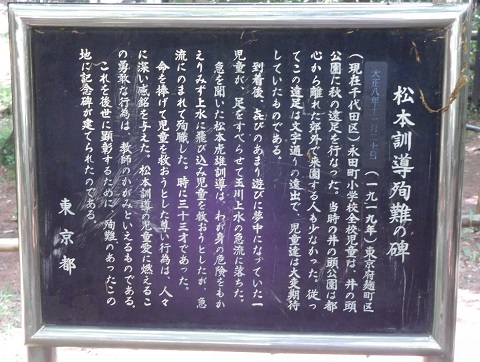 松本訓導殉難の碑
大正八年十一月二十日
(一九一九年)東京府麹町区
(現在千代田区)永田町小学校全校児童は、井の頭
公園に秋の遠足を行なった。当時の井の頭公園は都
心から離れた郊外で来園する人も少なかった。従っ
てこの遠足は文字通りの遠出で、児童達は大変期待
していたものである。
到着後、喜びのあまり遊びに夢中になっていた一
児童が、足をすべらせて玉川上水の急流に落ちた。
急を聞いた松本虎雄訓導は、わが身の危険をもか
えりみず上水に飛び込み児童を救おうとしたが、急
流にのまれて殉職した。時に三十三才であった。
命を捧げて児童を救おうとした尊い行為は、人々
に深い感銘を与えた。松本訓導の児童愛に燃えるこ
の勇敢な行為は、教師のかがみといえるものである。
これを後世に顕彰するために、殉難のあったこの
地に記念碑が建てられたのである。
東京都